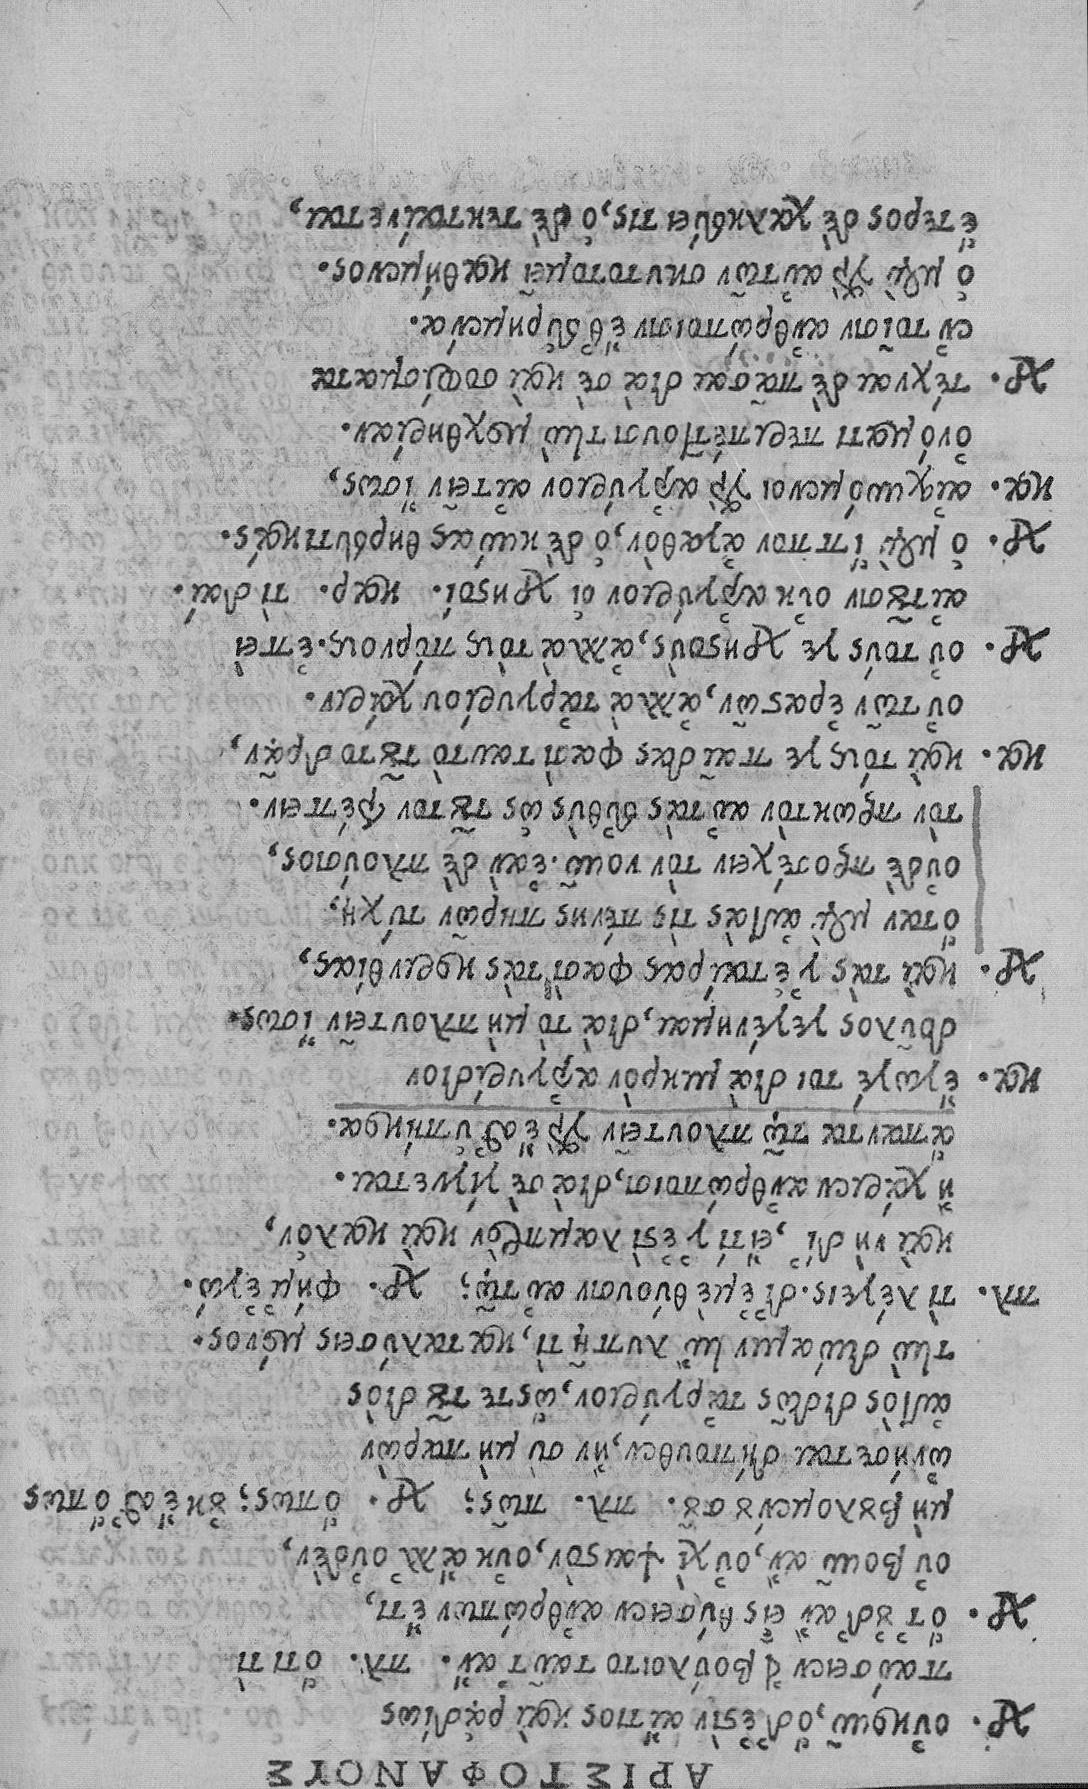 ΑΡΙΣΤΟΦΑΝΟΥΣ
Χρ. οὔκουν, ὅδ' ἐστὶν αἴτιος καὶ ῥᾳδίως
παύσειεν εἰ βούλοιτο ταῦτ' ἄν. πλ. ὅτι τί
Χρ. ὅτ' οὐδ' ἂν εἷς θύσειεν ἀνθρώπων ἔτι,
οὐ βοῦν ἄν, οὐχὶ ψαιστὸν, οὐκ ἄλλ' οὐδέν,
μὴ βουλομένου σοῦ. πλ. πῶς; Χρ. ὅπως; οὐκ ἔσθ' ὅπως
ὠνήσεται δήπουθεν, ἢν σὺ μὴ παρὼν
αὐτὸς διδῷς τἀργύριον, ὥστε τοῦ διὸς
τὴν δύναμιν ἢν λυπῇ τι, καταλύσεις μόνος.
πλ. τί λέγεις. δι' ἐμὲ θύουσιν αὐτῷ; Χρ. φήμ' ἐγώ.
καὶ νὴ δί', εἴ τι γ' ἐστὶ λαμπρὸν καὶ καλὸν,
ἢ χάριεν ἀνθρώποισι, διὰ σὲ γίγνεται.
ἅπαντα τῷ πλουτεῖν γάρ ἐσθ' ὑπήκοα.
κα. ἔγωγέ τοι διὰ μικρὸν ἀργυρίδιον
δοῦλος γεγένημαι, διὰ τὸ μὴ πλουτεῖν ἴσως.
Χρ. καὶ τάς γ' ἑταίρας φασὶ τὰς κορινθίας,
ὅταν μὲν αὐτάς τις πένης πειρῶν τύχῃ,
οὐδὲ προσέχειν τὸν νοῦν. ἐὰν δὲ πλούσιος,
τὸν πρωκτὸν αὐτὰς εὐθὺς ὡς τοῦτον τρέπειν.
κα. καὶ τούς γε παῖδας φασὶ ταυτὸ τοῦτο δρᾶν,
οὐ τῶν ἐραστῶν, ἀλλὰ τἀργυρίου χάριν.
Χρ. οὐ τούς γε χρηστούς, ἀλλὰ τοὺς πόρνους. ἐπεὶ
αἰτοῦσιν οὐκ ἀργύριον οἱ χρηστοί. καρ. τί δαί.
Χρ. ὁ μὲν ἵππον ἀγαθόν, ὁ δὲ κύνας θηρευτικάς.
κα. αἰσχυνόμενοι γὰρ ἀργύριον αἰτεῖν ἴσως,
ὀνόματι περιπέττουσι τὴν μοχθηρίαν.
Χρ. τέχναι δὲ πᾶσαι διὰ σὲ καὶ σοφίσματα
ἐν τοῖσιν ἀνθρώποισιν ἔσθ' εὑρημένα.
ὁ μὲν γὰρ αὐτῶν σκυτοτομεῖ καθήμενος.
ἕτερος δὲ χαλκεύει τις, ὁ δὲ τεκταίνεται,